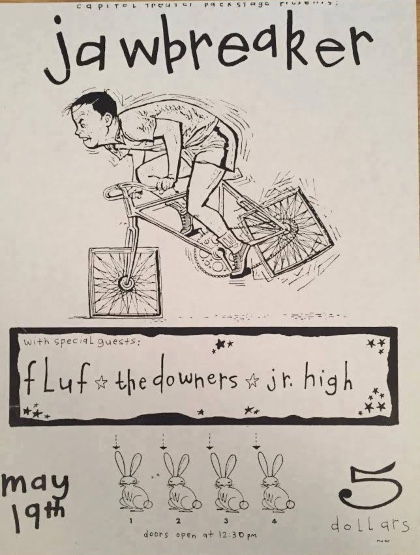 capitol theater backstage presents:
jawbreaker
with special guests:
fLuf ☆ the downers ☆ jr. high
1 2 3 4
may
19th
5
dollars
doors open at 12:30 pm